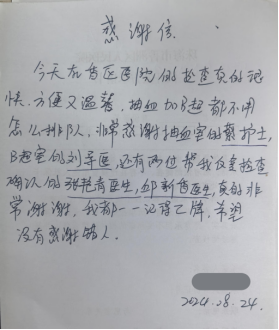 感谢信
今天在省医医院的检查真的很
快、方便又温馨。抽血加B超都不用
怎么排队，非常感谢抽血室的蔡护士，
B超室的刘军医，还有两位帮我复查检查
确认的张艳青医生，邱新医生，真的非
常谢谢，我都一一记得工牌，希望
没有感谢错人。
2024.08.24.